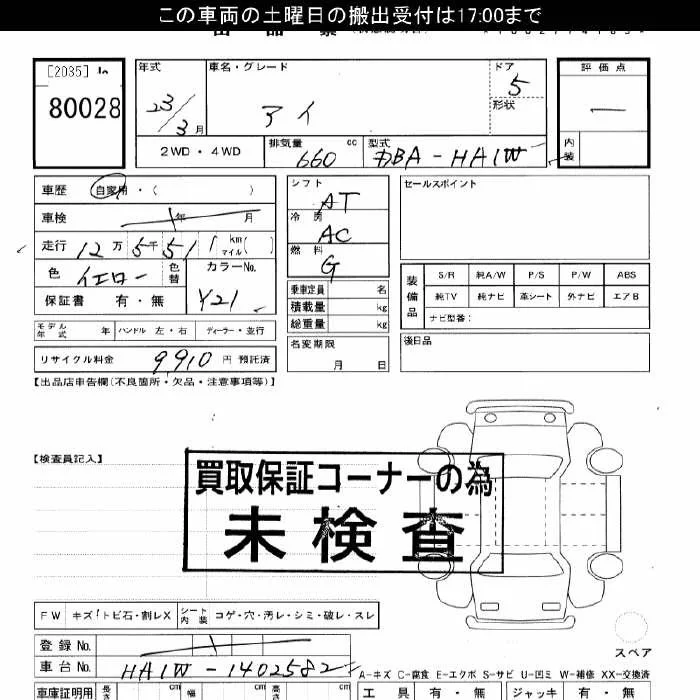 この車両の土曜日の搬出受付は17:00まで
[2035]
80028
年式 23/3月
車名・グレード アイ
ドア 5
形状
評価点 ー
内装
2WD・4WD
排気量 660 cc
型式 DBA-HA1W
車歴 自家用・( )
車検 年 月
走行 12万5千51 km マイル( )
色 イエロー 色替
カラーNo. Y21
保証書 有・無
シフト AT
冷房 AC
燃料 G
乗車定員 名
積載量 kg
総重量 kg
名変期限 月 日
セールスポイント
装備品
S/R 純A/W P/S P/W ABS
純TV 純ナビ 革シート 外ナビ エアB
ナビ型番:
後日品
モデル年式 年 ハンドル 左・右 ディーラー・並行
リサイクル料金 9910 円 預託済
【出品店申告欄(不良箇所・欠品・注意事項等)】
【検査員記入】
買取保証コーナーの為
未検査
FW キズ!トビ石・割レX シート内装 コゲ・穴・汚レ・シミ・破レ・スレ
スペア
登録No.
車台No. HA1W-1402582
A-キズ C-腐食 E-エクボ S-サビ U-凹ミ W-補修 XX-交換済
車庫証明用 長さ cm 幅 cm cm
工具 有・無 ジャッキ 有・無